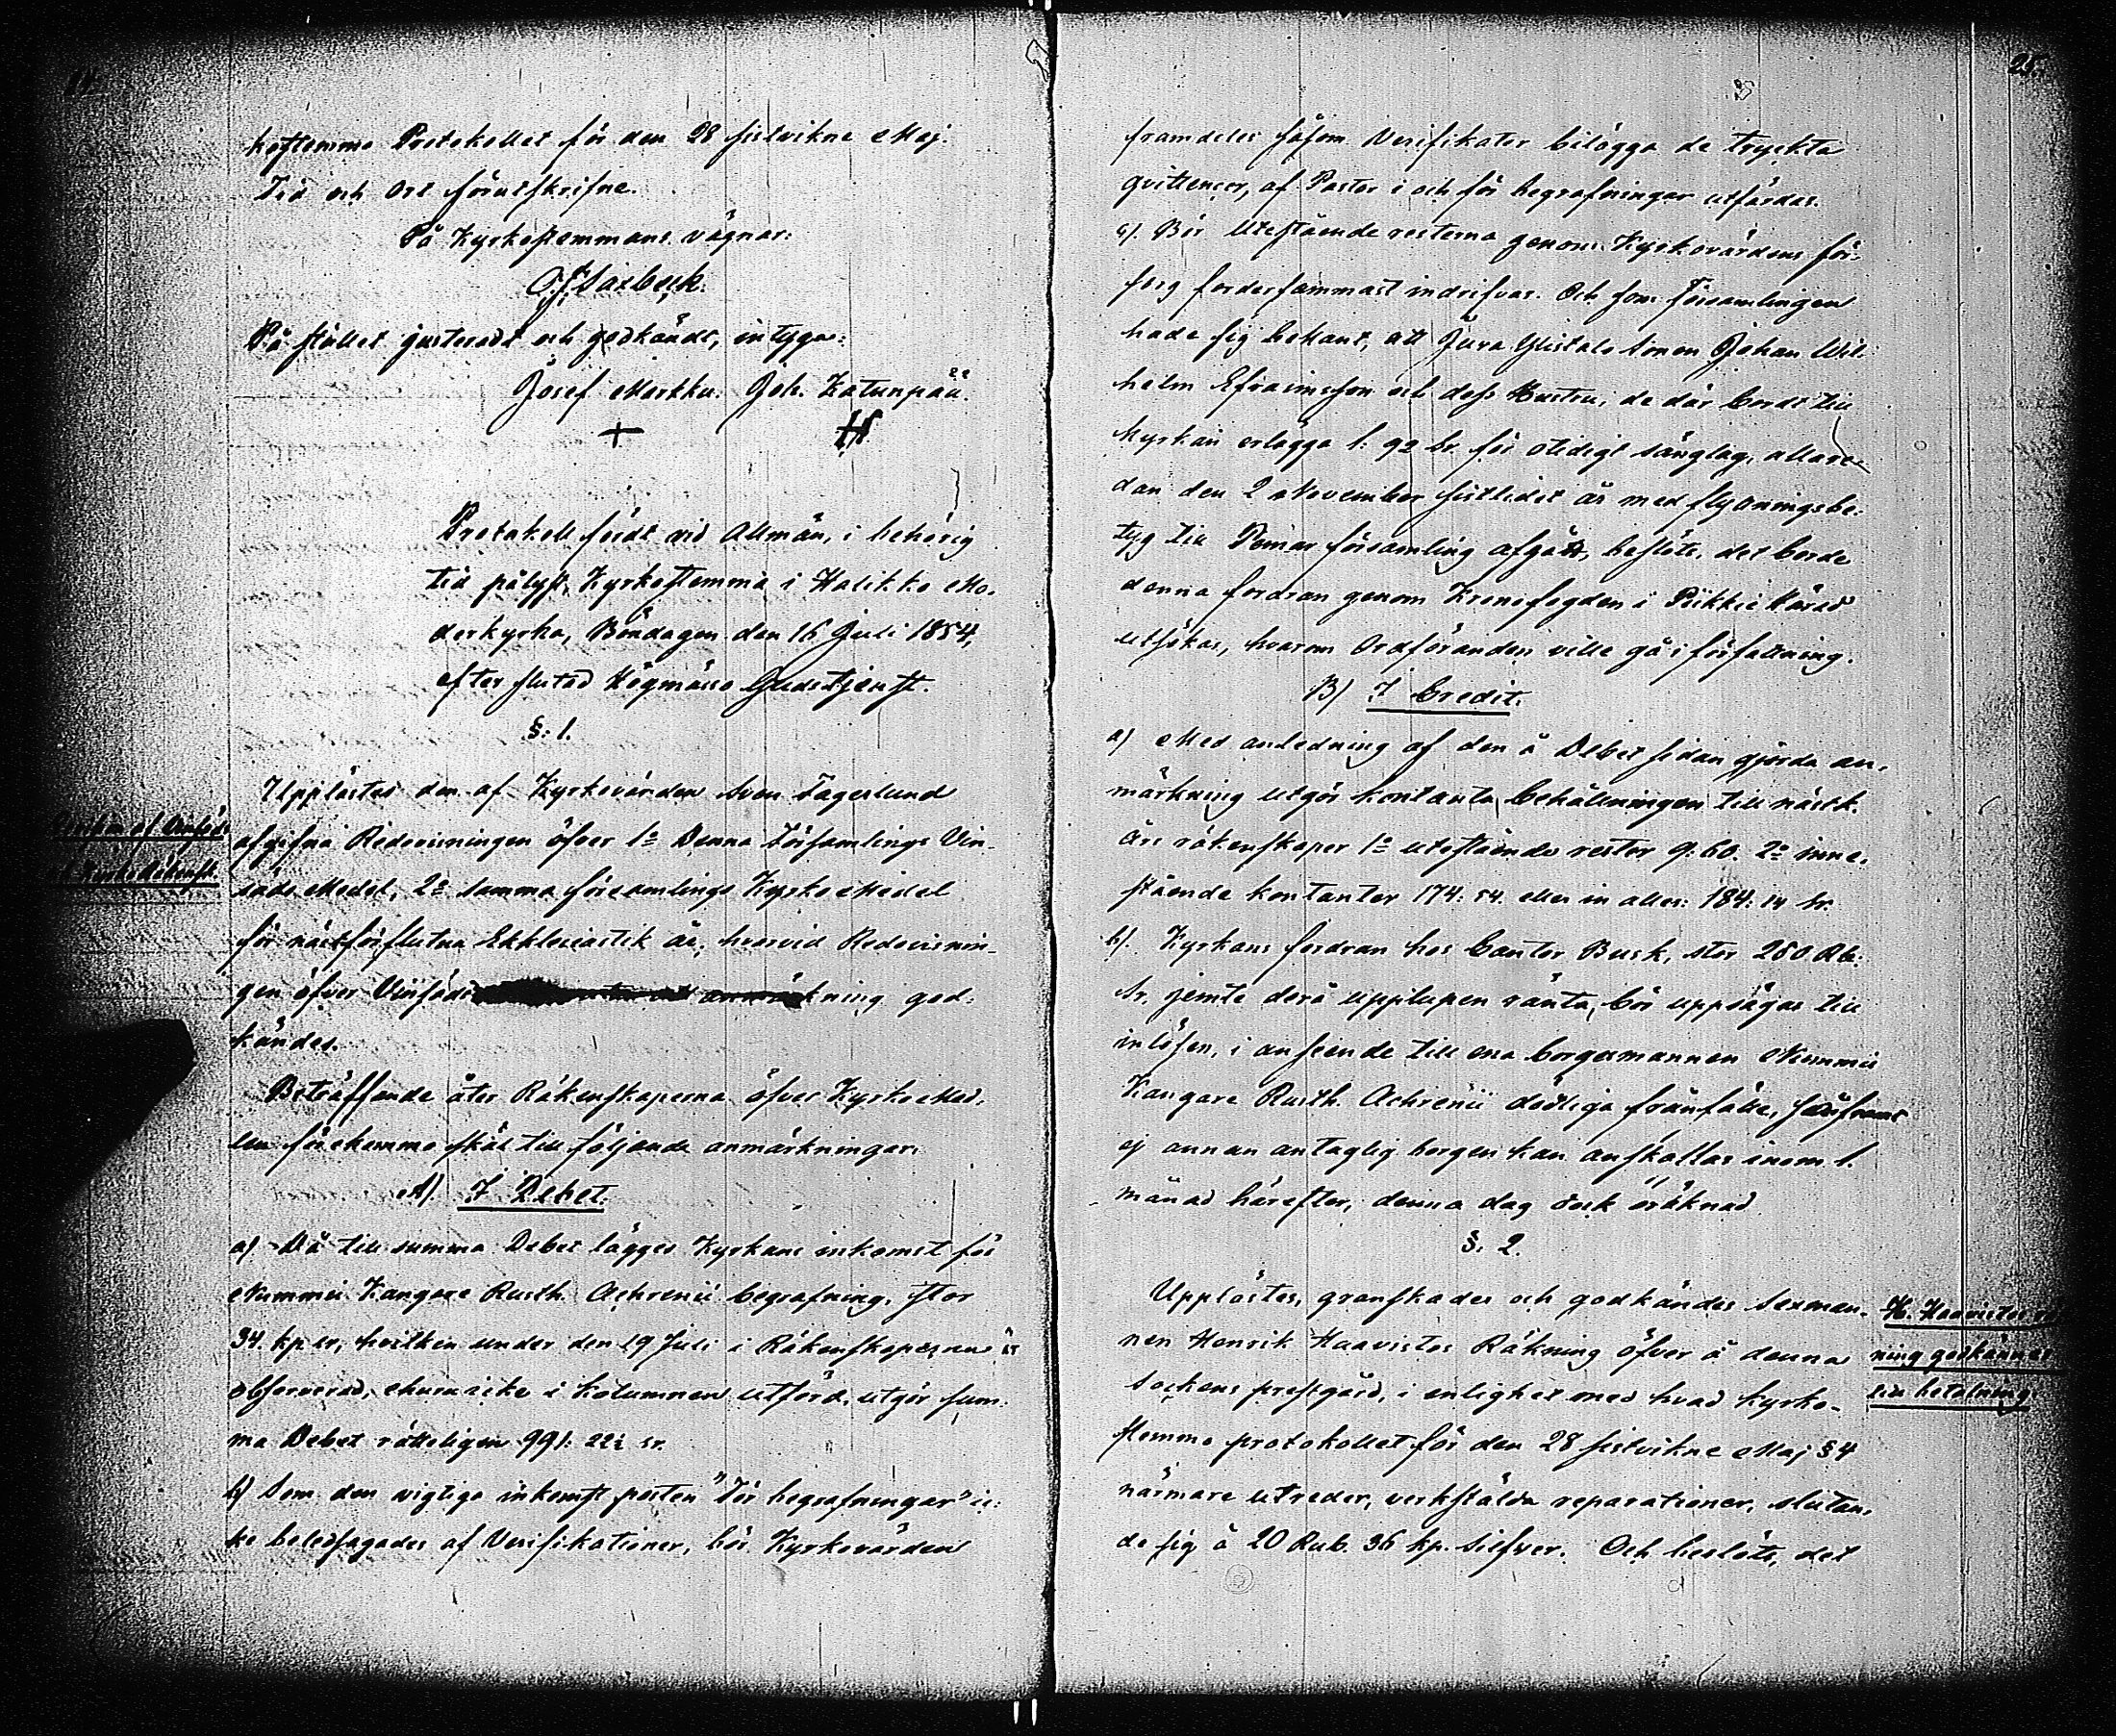 24.
kostemmo Protokollet för den 28 sistvikne Maj.
Tid och Ort förutskrifne.
På Kyrkostemmans vägnar:
På stället justeradt och godkändt, intyga:
Josef Markku. Joh. Katunpää.
Protokoll fördt vid Allmän, i behörig
tid pålyst Kyrkostemma i Halikko Mo-
derkyrka, Böndagen den 16 Juli 1854,
efter slutad Högmässo Gudstjenst.
§: 1.
Upplästes den af Kyrkovärden Sven Fagerlund
afgifna Redovisningen öfver 1o Denna Församlings Vin-
säds Medel, 2o Samma församlings Kyrko Medel
för nästförflutna Ekklesiastik år; hvarvid Redovisnin-
gen öfver Vinsäds anmärkning god-
kändes.
Beträffande åter Räkenskaperna öfver Kyrko Med-
len förekommo skäl till följande anmärkningar:
A). I Debet.
a) Då till summa Debet lägges Kyrkans inkomst för
Nummis Kangare Rusth. Achrenii begrafning, stor
34. kp sr, hvilken under den 19 Juli i Räkenskaperna är
observerad, ehuru icke i kolumnen utförd, utgör sum-
ma Debet rätteligen 991: 22½ sr.
b) Som den vigtiga inkomst posten "För begrafningar" ic-
ke beledsagades af Verifikationer, bör Kyrkovärden
25.
framdeles såsom Verifikater bilägga de tryckta
qvittencer, af Pastor i och för begrafningar utfärdas.
c). Bör Utestående resterna genom Kyrkovärdens för-
sorg fordersammast indrifvas. Och som Församlingen
hade sig bekant, att Juva Ylistalo Sonen Johan Wil-
helm Efraimsson och dess Hustru, de där bordt till
Kyrkan erlägga 1: 92 sr. för otidigt sänglag, allare-
dan den 2 November sistlidet år med flyttningsbe-
tyg till Pemar församling afgått, beslöts, det borde
denna fordran genom Kronofogden i Piikkie Härad
utsökas, hvarom Ordföranden ville gå i författning.
B) I Credit.
a) Med anledning af den å Debet sidan gjorda an-
märkning utgör kontanta behållningen till nästk.
års räkenskaper 1o utestående rester 9: 60. 2o inne-
stående kontanter 174: 54. eller in alles: 184: 14 sr.
b). Kyrkans fordran hos Cantor Busk, stor 280 Rb.
Sr, jemte derå upplupen ränta, bör uppsägas till
inlösen, i anseende till ena borgesmannen Nummis
Kangare Rusth. Achrenii dödliga frånfälle, såframt
ej annan antaglig borgen kan anskaffas inom 1.
månad härefter, denna dag dock oräknad.
§. 2.
Upplästes, granskades och godkändes Sexman-
nen Henrik Haavistos Räkning öfver å denna
Sockens prestgård, i enlighet med hvad kyrko-
stemmo protokollet för den 28 sistvikne Maj § 4
närmare utreder, verkstälda reparationer, slutan-
de sig å 20 Rub. 36 kp. silfver. Och beslöts, det
H. Haavistos
ning godkännes
till betalning.